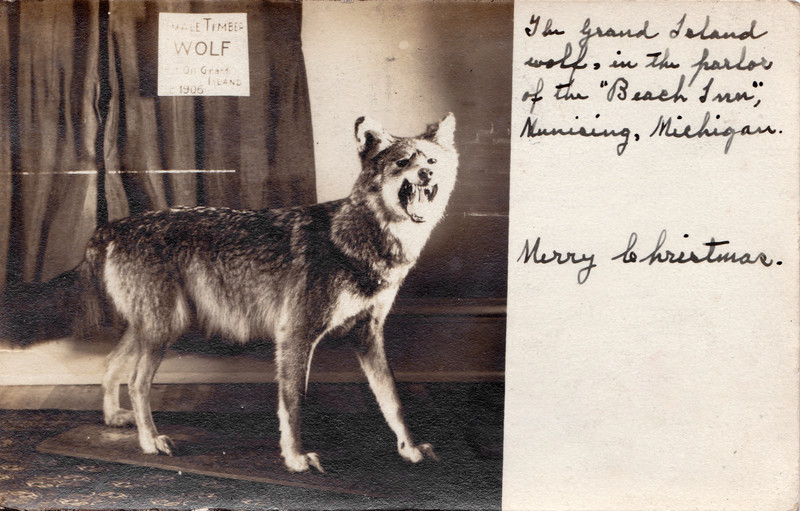 MALE TIMBER
WOLF
On Grand
ISLAND
1906
The Grand Island
wolf, in the parlor
of the "Beach Inn",
Munising, Michigan.
Merry Christmas.